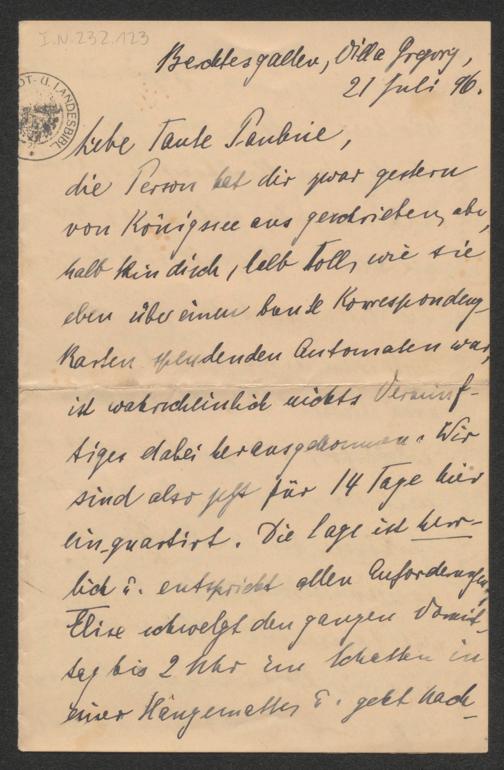 I.N.232.123
DT- U. LANDESBIBL.
Berchtesgaden, Villa Gregory,
21 Juli 96.
Liebe Tante Pauline,
die Person hat dir zwar gestern
von Königssee aus geschrieben, aber,
halb kindisch, halb toll, wie sie
eben über einen bunte Korrespondenz-
karten spendenden Automaten war,
ist wahrscheinlich nichts Vernünf-
tiges dabei herausgekommen. Wir
sind also jetzt für 14 Tage hier
einquartirt. Die Lage ist herr-
lich u. entspricht allen Anforderungen,
Elise schwelgt den ganzen Vormit-
tag bis 2 Uhr im Schatten in
einer Hängematte, u. geht nach-